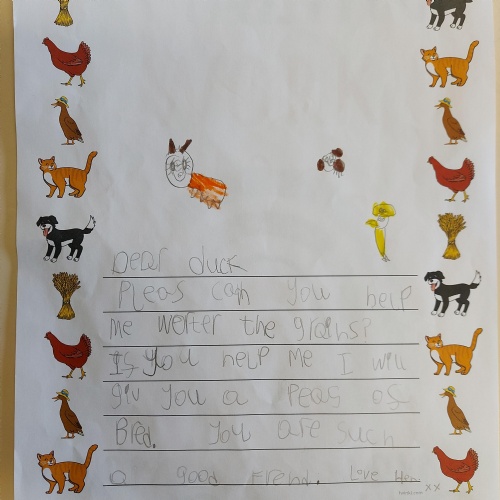 Dear duck
Pleas can you help
me werter the grains?
If you help me I will
giv you a peas of
Bred. You are such
a good friend. Love Hen
xx